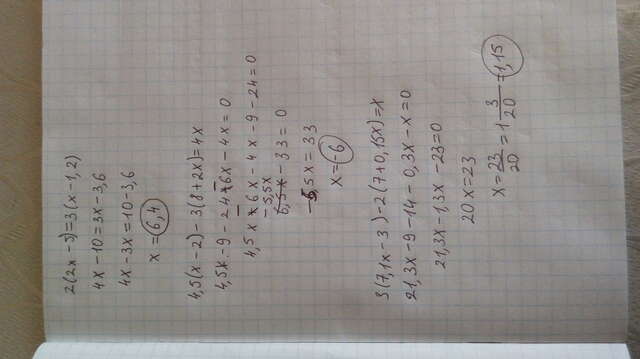 2(2x-5)=3(x-1,2)
4x-10=3x-3,6
4x-3x=10-3,6
x=6,4
4,5(x-2)-3(8+2x)=4x
4,5x-9-24-6x-4x=0
4,5x-6x-4x-9-24=0
-5,5x
6,5x-33=0
-5,5x=33
x=-6
3(7,1x-3)-2(7+0,15x)=x
21,3x-9-14-0,3x-x=0
21,3x-1,3x-23=0
20x=23
x=23/20=1 3/20=1,15